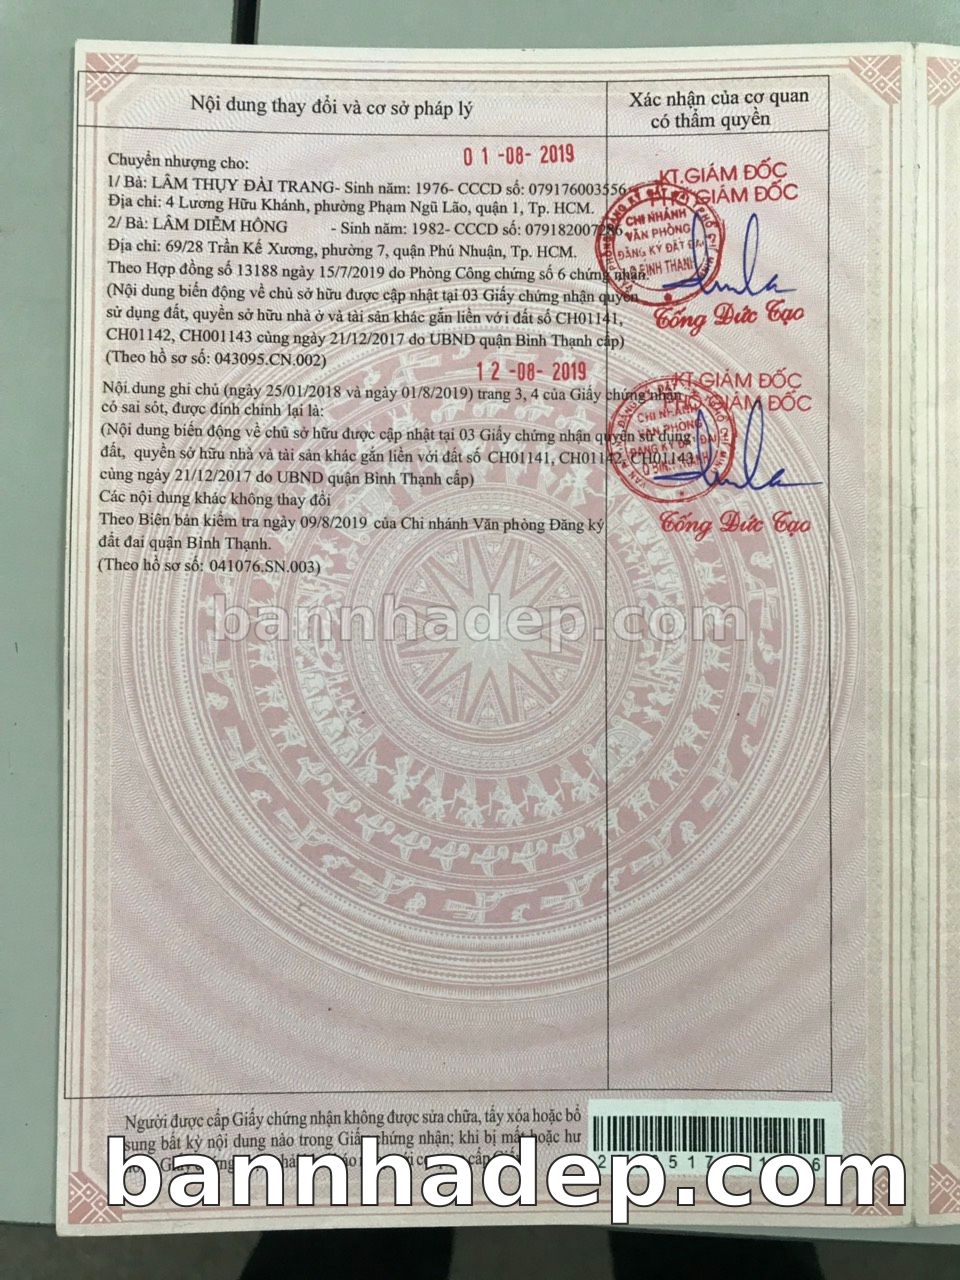 Nội dung thay đổi và cơ sở pháp lý
Xác nhận của cơ quan
có thẩm quyền
01-08-2019
Chuyển nhượng cho:
1/ Bà: LÂM THỤY ĐÀI TRANG- Sinh năm: 1976- CCCD số: 079176003556
Địa chỉ: 4 Lương Hữu Khánh, phường Phạm Ngũ Lão, quận 1, Tp. HCM.
2/ Bà: LÂM DIỄM HÔNG - Sinh năm: 1982- CCCD số: 079182007286
Địa chỉ: 69/28 Trần Kế Xương, phường 7, quận Phú Nhuận, Tp. HCM.
Theo Hợp đồng số 13188 ngày 15/7/2019 do Phòng Công chứng số 6 chứng nhận.
(Nội dung biến động về chủ sở hữu được cập nhật tại 03 Giấy chứng nhận quyền
sử dụng đất, quyền sở hữu nhà ở và tài sản khác gắn liền với đất số CH01141,
CH01142, CH001143 cùng ngày 21/12/2017 do UBND quận Bình Thạnh cấp)
(Theo hồ sơ số: 043095.CN.002)
KT.GIÁM ĐỐC
GIÁM ĐỐC
CHI NHÁNH
VĂN PHÒNG
ĐĂNG KÝ ĐẤT ĐAI
Q.BÌNH THẠNH
Tống Đức Tạo
12-08-2019
Nội dung ghi chú (ngày 25/01/2018 và ngày 01/8/2019) trang 3, 4 của Giấy chứng nhận
có sai sót, được đính chính lại là:
(Nội dung biến động về chủ sở hữu được cập nhật tại 03 Giấy chứng nhận quyền sử dụng
đất, quyền sở hữu nhà và tài sản khác gắn liền với đất số CH01141, CH01142, CH01143
cùng ngày 21/12/2017 do UBND quận Bình Thạnh cấp)
Các nội dung khác không thay đổi
Theo Biên bản kiểm tra ngày 09/8/2019 của Chi nhánh Văn phòng Đăng ký
đất đai quận Bình Thạnh.
(Theo hồ sơ số: 041076.SN.003)
KT.GIÁM ĐỐC
PHÓ GIÁM ĐỐC
CHI NHÁNH
VĂN PHÒNG
ĐĂNG KÝ ĐẤT ĐAI
Q.BÌNH THẠNH
Tống Đức Tạo
bannhadep.com
Người được cấp Giấy chứng nhận không được sửa chữa, tẩy xóa hoặc bổ
sung bất kỳ nội dung nào trong Giấy chứng nhận; khi bị mất hoặc hư
bannhadep.com